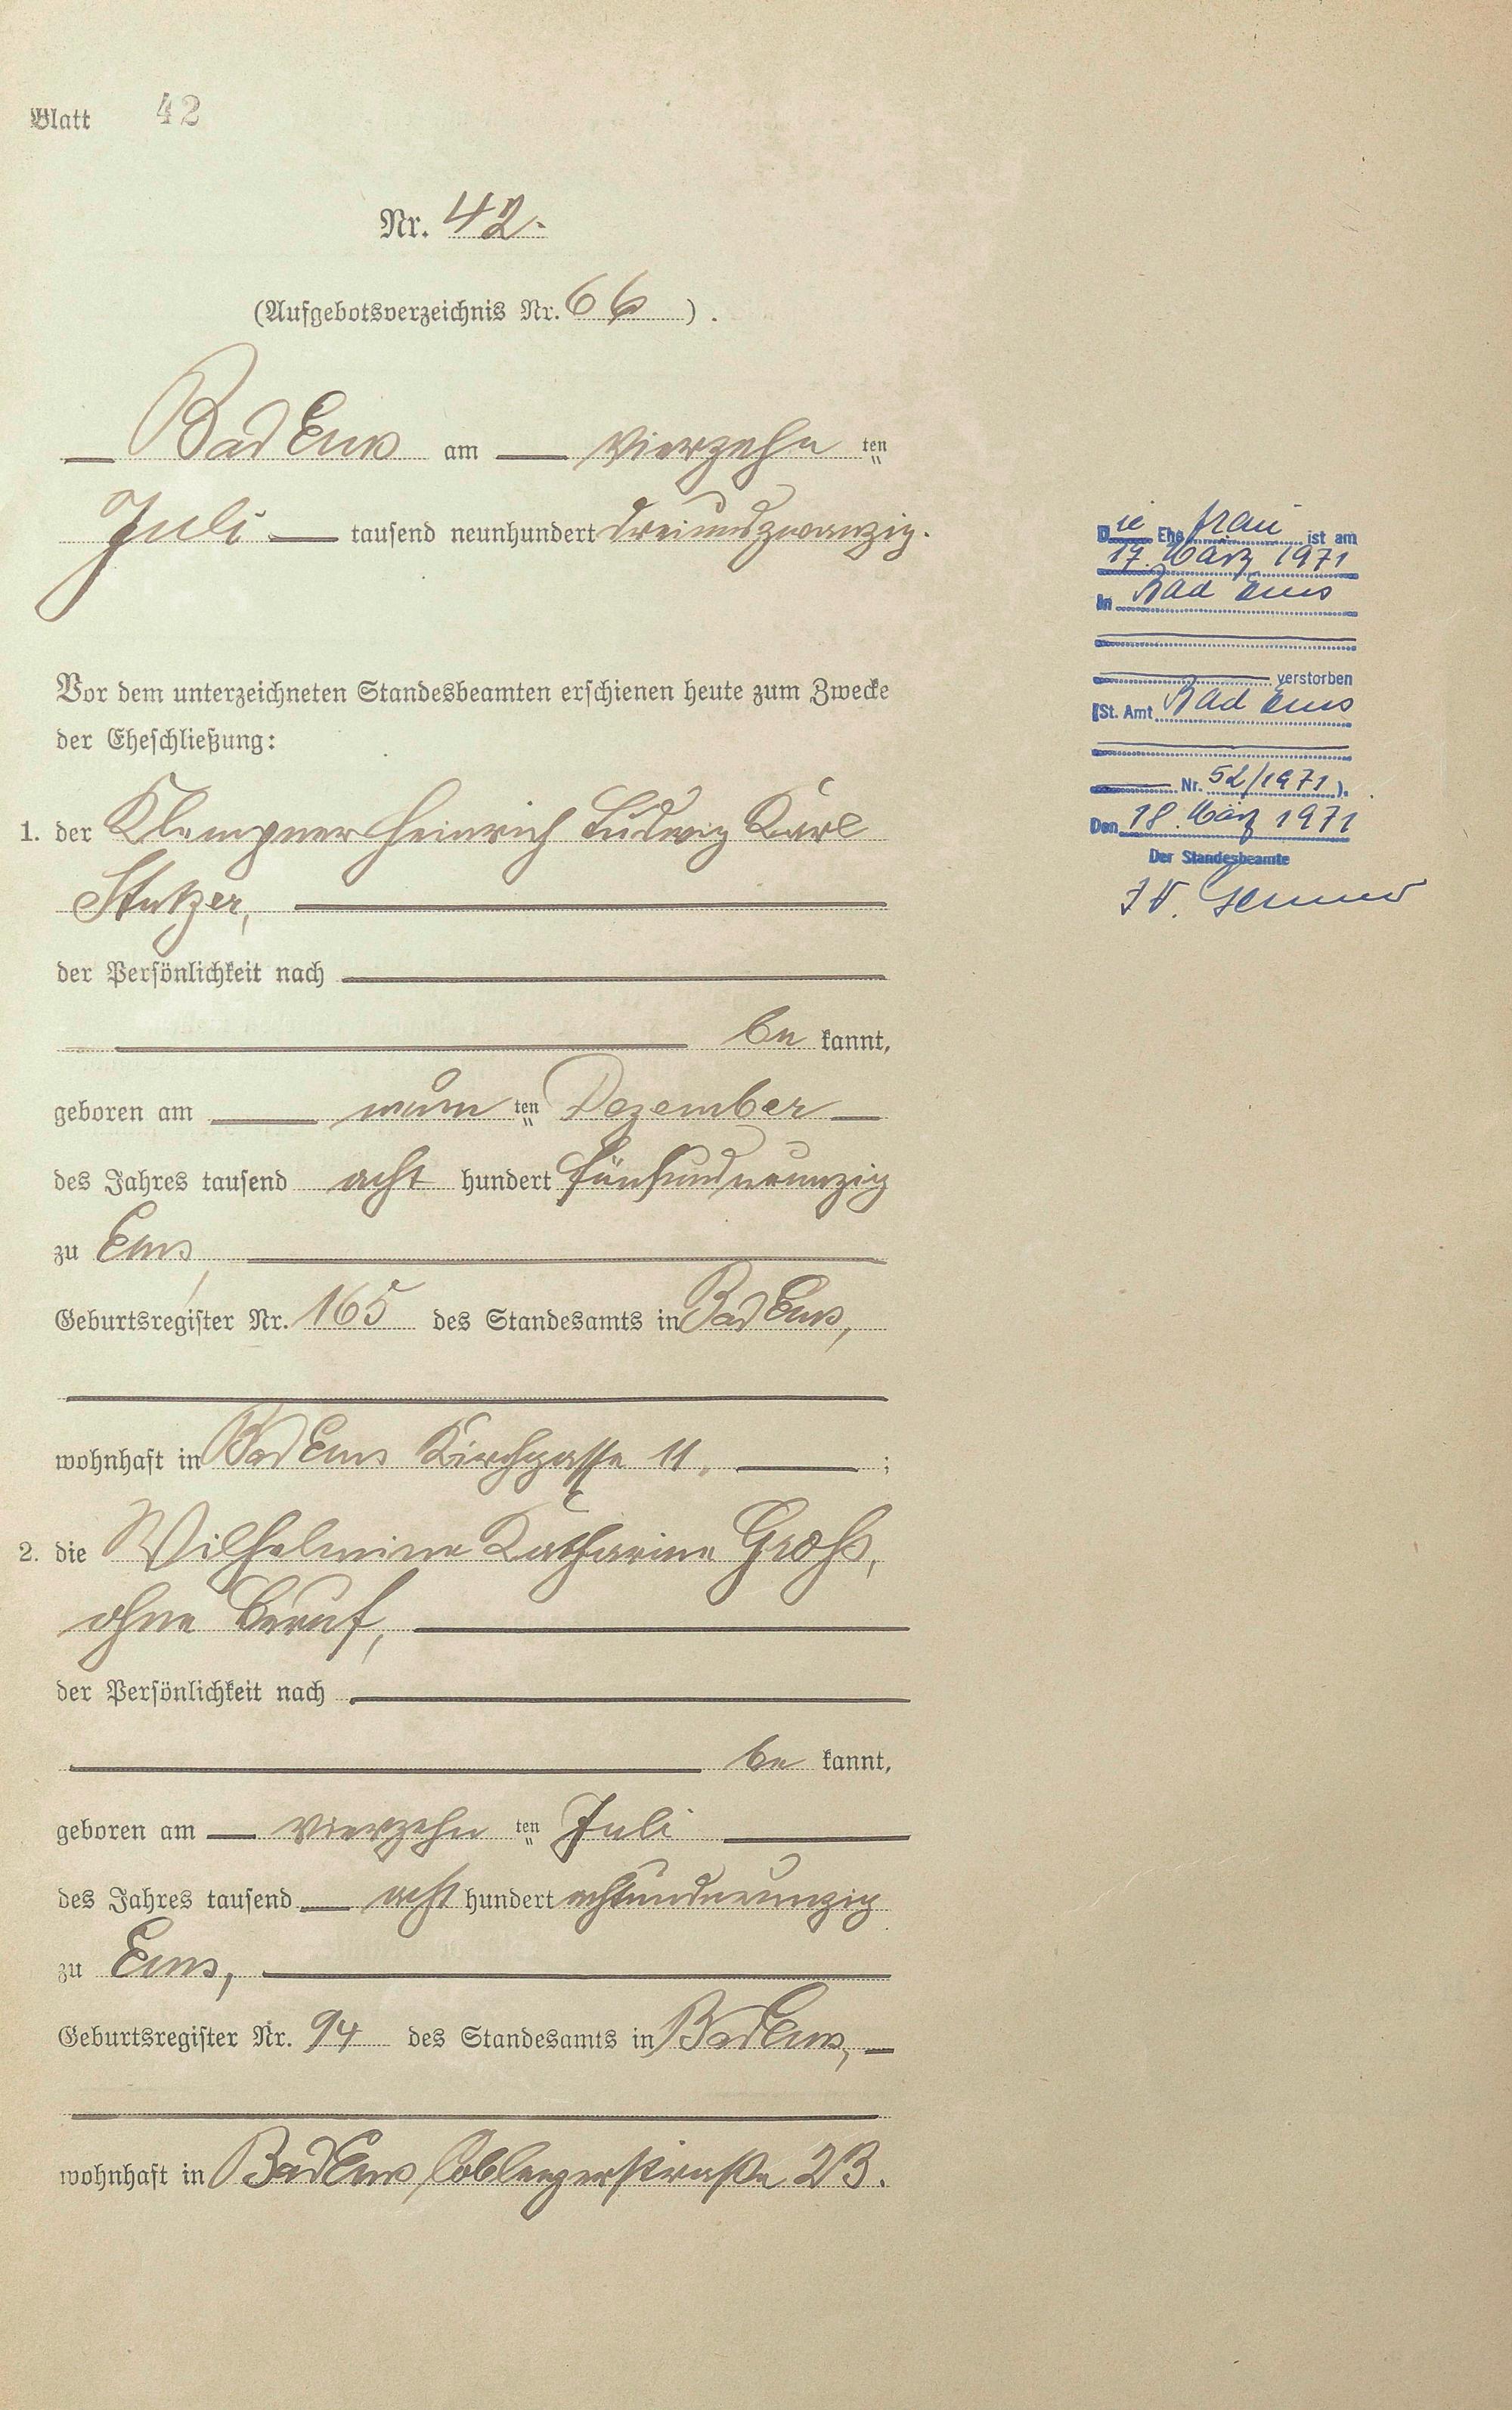 Blatt 42
Nr. 42.
(Aufgebotsverzeichnis Nr. 66).
Bad Ems am vierzehn ten
Juli tausend neunhundert dreiundzwanzig.
Vor dem unterzeichneten Standesbeamten erschienen heute zum Zwecke
der Eheschließung:
1. der Klempner Heinrich Ludwig Karl
Stutzer,
der Persönlichkeit nach
be kannt,
geboren am neun ten Dezember
des Jahres tausend acht hundert fünfundneunzig
zu Ems,
Geburtsregister Nr. 165 des Standesamts in Bad Ems,
wohnhaft in Bad Ems Kirchgasse 11. ;
2. die Wilhelmine Katharine Groß,
ohne Beruf,
der Persönlichkeit nach
be kannt,
geboren am vierzehn ten Juli
des Jahres tausend acht hundert achtundneunzig
zu Ems,
Geburtsregister Nr. 94 des Standesamts in Bad Ems,
wohnhaft in Bad Ems, Coblenzerstraße 23.
Die Ehefrau ist am
17. März 1971
in Bad Ems
verstorben
(St. Amt Bad Ems
Nr. 52/1971).
Den 18. März 1971
Der Standesbeamte
I V.